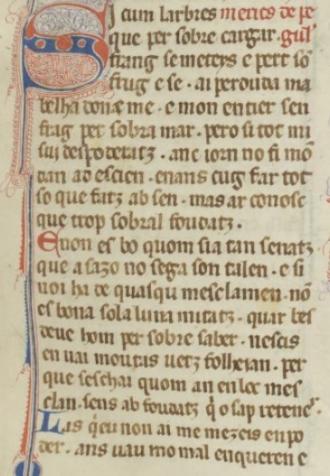 Si cum larbres meties de pe
que per sobre cargar · gūl
frang se meteys e pert so
frug e se · ai perduda ma
belha donæ me · e mon entier sen
frag per sobra mar · pero si tot mi
sui despodetatz · anc iorn no fi mō
dan ad escien · enans cug far tot
so que fatz ab sen · mas ar conosc
que trop sobral foudatz ·
E non es bo quom sia tan senatz
que a sazo no sega son talen · e si
noi ha de quasqu mesclamen · nō
es bona sola luna mitatz · quar bes
deue hom per sobre saber · nescis
en uai moutas uetz folheian · per
que seschai quom an en loc mes
clan · sens ab foudatz q̄ o sap retener ·
Las q̄eu non ai me mezeis en po
der · ans uau mo mal enqueren e